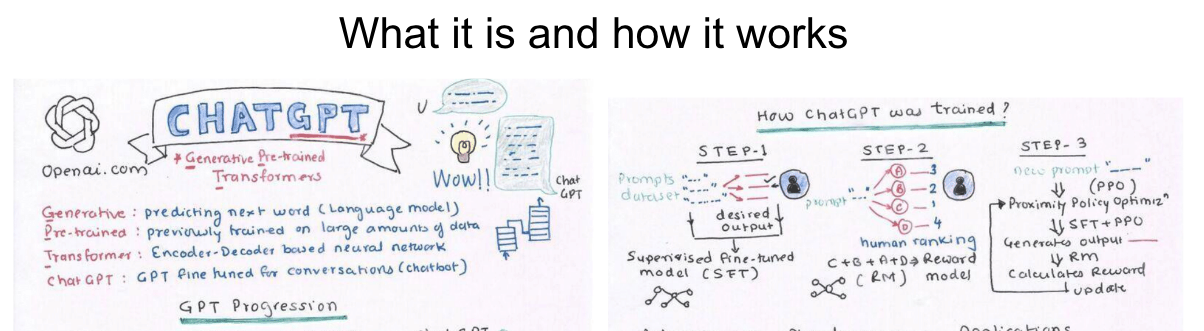 What it is and how it works
CHATGPT
Openai.com
Generative Pre-trained
Transformers
U
WOW!!
Chat
GPT
Generative : predicting next word (Language model)
Pre-trained : previously trained on large amounts of data
Transformer : Encoder-Decoder based neural network
Chat GPT : GPT fine tuned for conversations (chatbot)
GPT Progression
How ChatGPT was trained?
STEP-1
Prompts
dataset
desired
output
Supervised fine-tuned
model (SFT)
STEP-2
prompt
A 3
B 2
C 1
D 4
human ranking
C+B+A+D → Reward
(RM) model
STEP-3
new prompt
(PPO)
Proximity Policy Optimizn
SFT+PPO
Generates output
RM
Calculates Reward
update
Applications